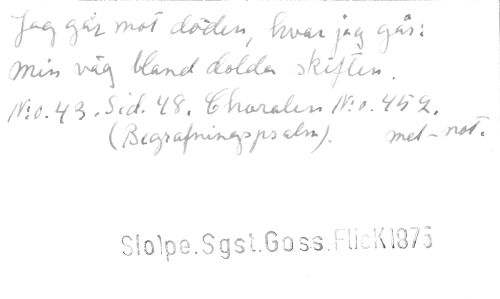 Jag går mot döden, hvar jag går:
min väg bland dolda skiften.
N:o. 43. Sid. 48. Choralen N:o. 452.
(Begrafningspsalm). mel-not.
Slolpe.Sgst.Goss.FlicK1875